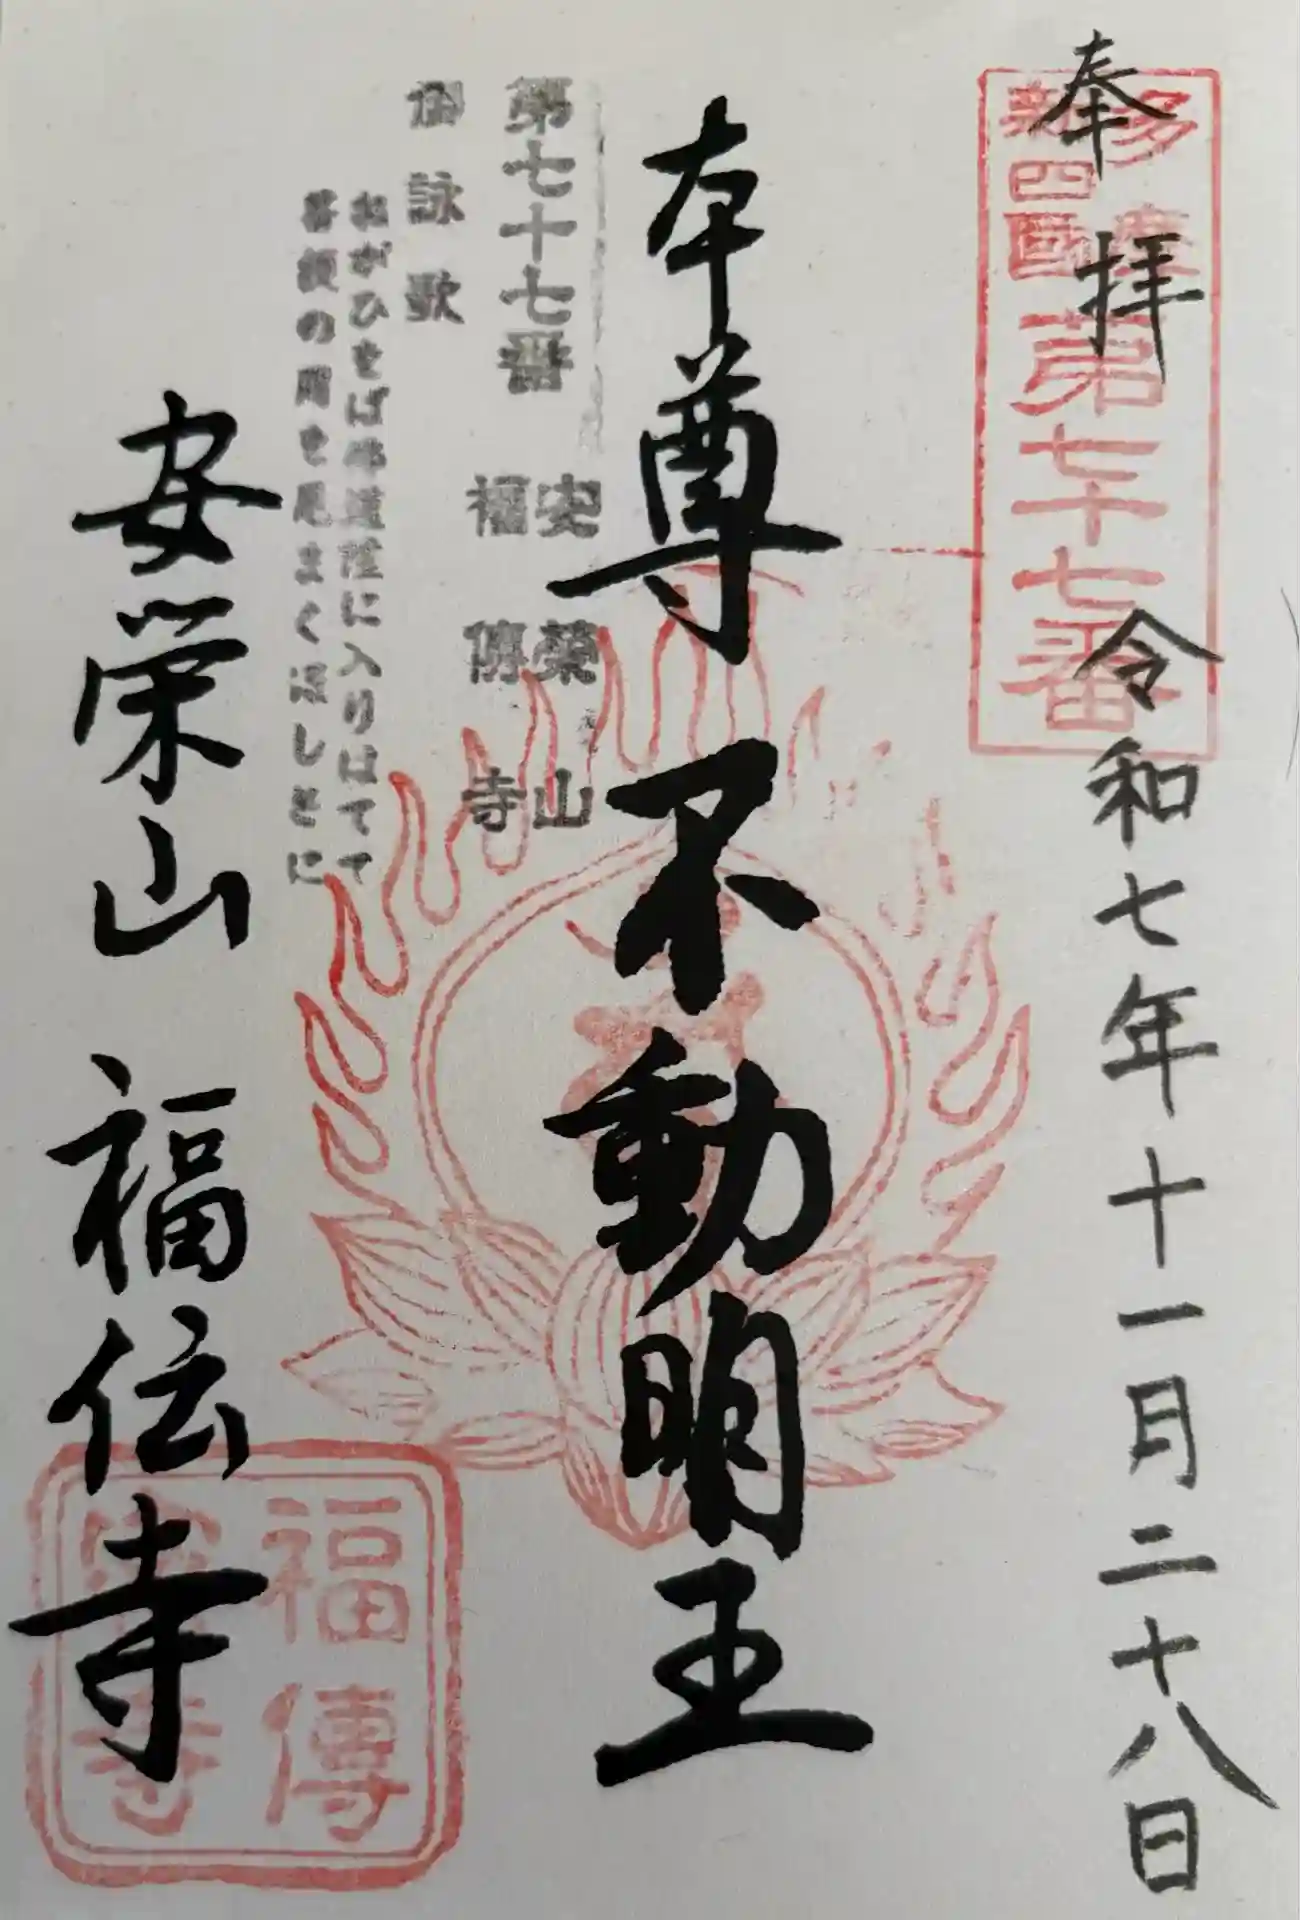 奉拝
令和七年十一月二十八日
多摩
新四國
第七十七番
本尊不動明王
第七十七番
安榮山
福傳寺
御詠歌
ねがひをば佛道に入りはてて
菩の月を見まくほしさに
安栄山 福伝寺
福傳
密寺